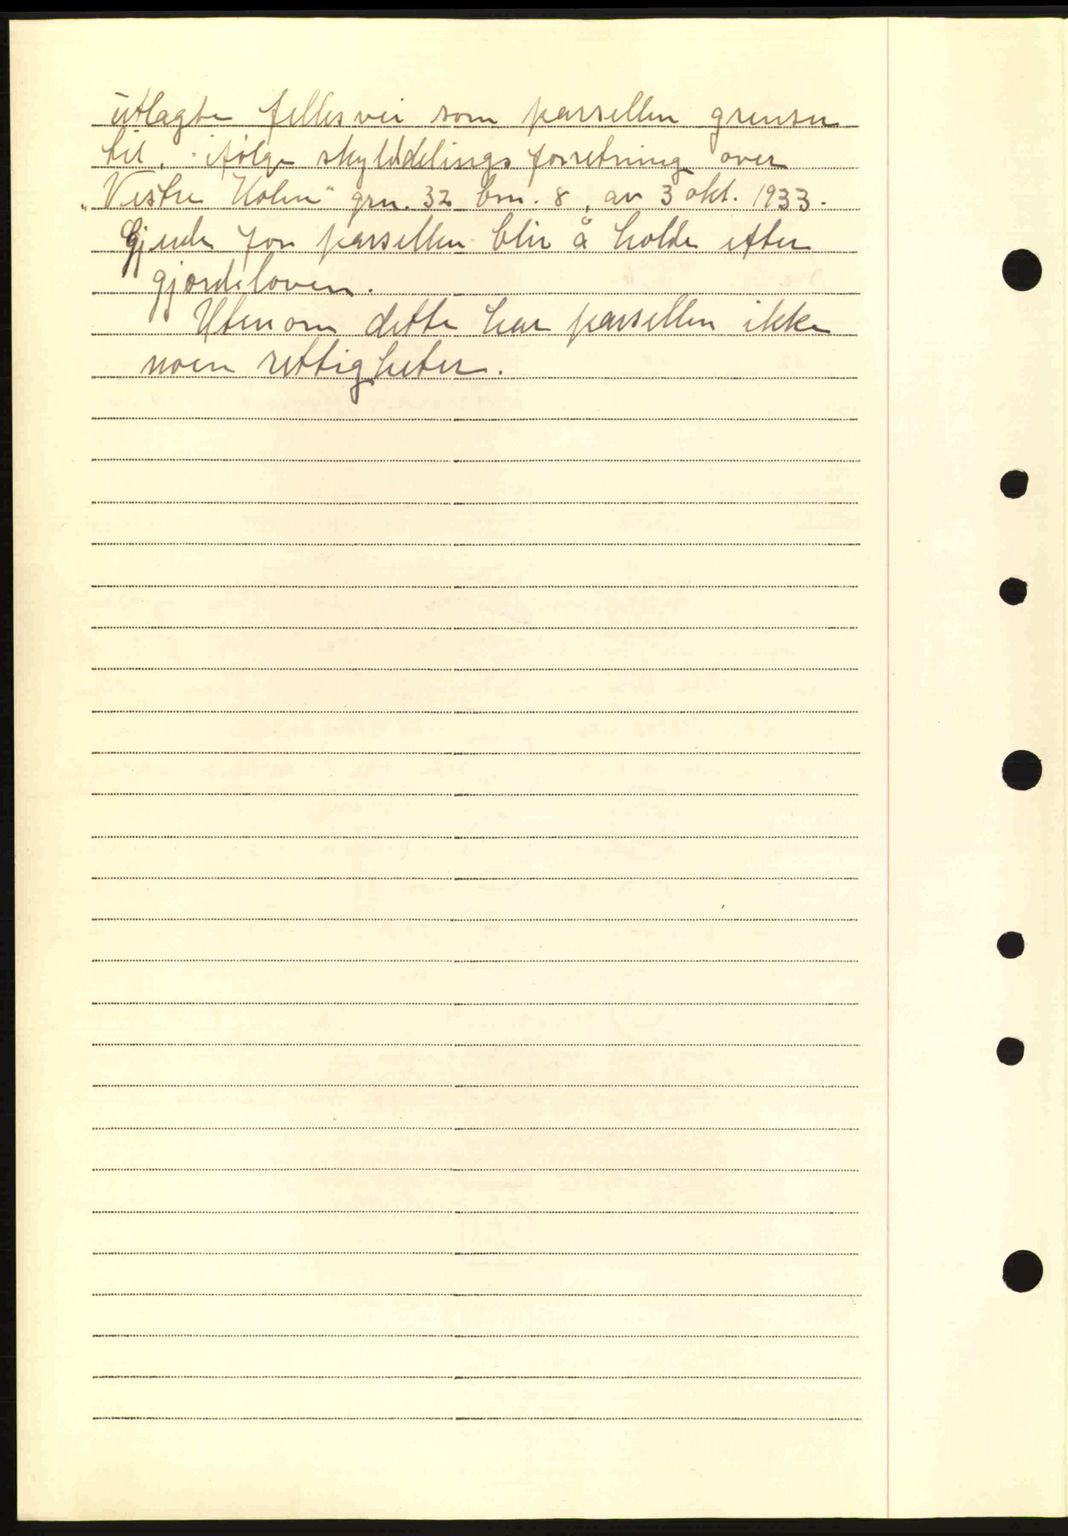 utlagte fellesvei som parsellen grenser
til, ifølge skylddelingsforretning over
„Vestre Holm" grn. 32 brn. 8, av 3 okt. 1933.
Gjerde for parsellen blir å holde efter
gjerdeloven.
Utenom dette har parsellen ikke
noen rettigheter.